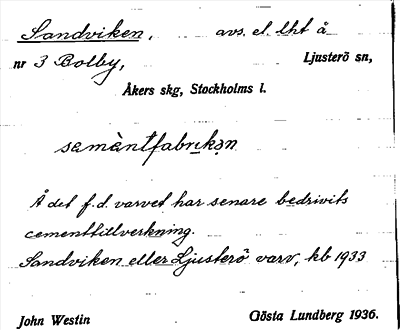 Sandviken, avs. el. lht å
nr 3 Bolby, Ljusterö sn,
Åkers skg, Stockholms l.
semàntfabrikən
Å det f.d. varvet har senare bedrivits
cementtillverkning.
Sandviken eller Ljusterö varv, kb 1933
John Westin Gösta Lundberg 1936.